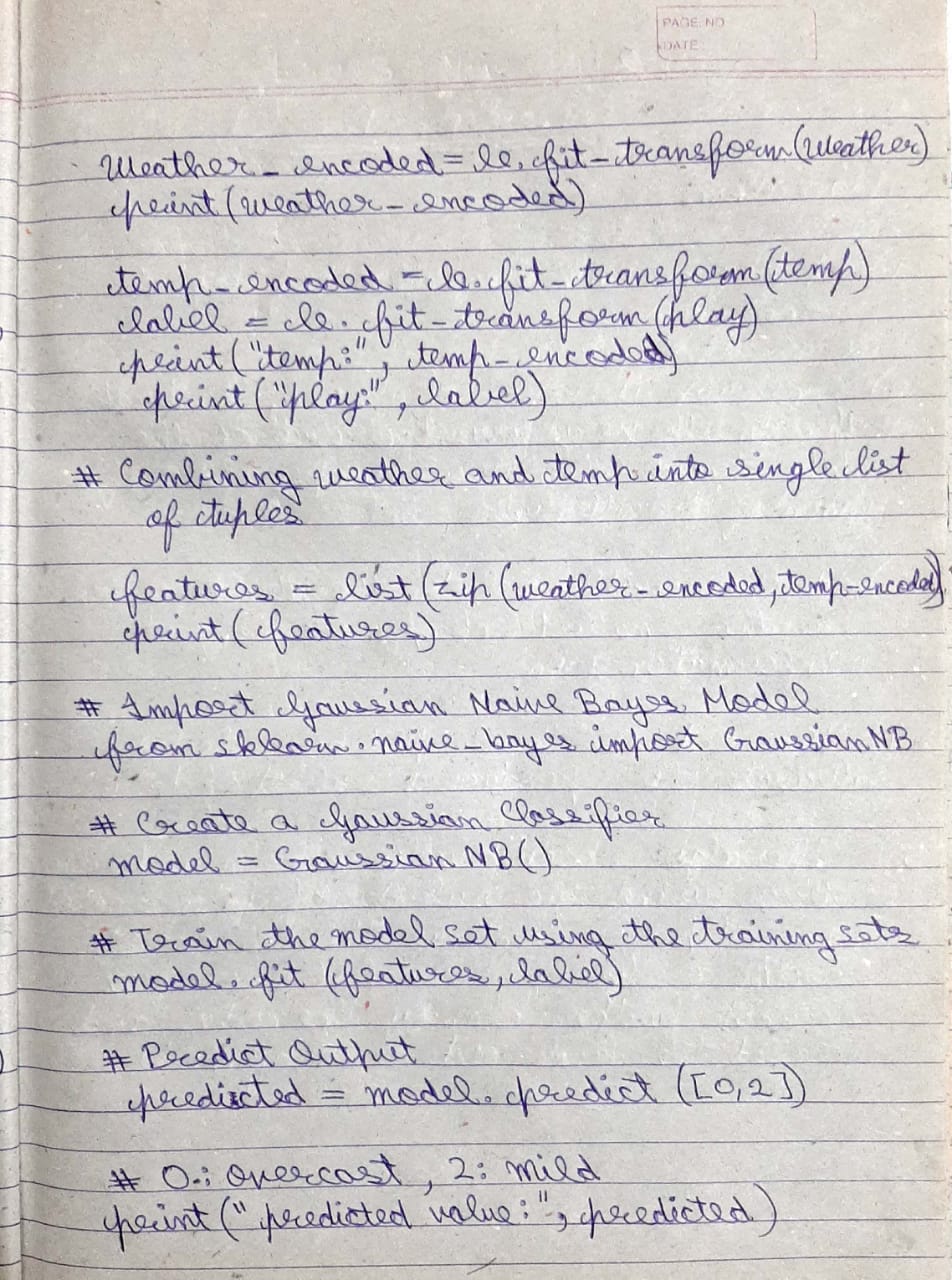 PAGE NO
DATE
Weather_encoded = le.fit_transform(weather)
print(weather_encoded)
temp_encoded = le.fit_transform(temp)
label = le.fit_transform(play)
print("temp:", temp_encoded)
print("play:", label)
# Combining weather and temp into single list
of tuples
features = list(zip(weather_encoded, temp_encoded)
print(features)
# Import Gaussian Naive Bayes Model
from sklearn.naive_bayes import GaussianNB
# Create a Gaussian Classifier
model = GaussianNB()
# Train the model set using the training sets
model.fit (features, label)
# Predict Output
predicted = model.predict ([0,2])
# 0: overcast, 2: mild
print("predicted value:", predicted)